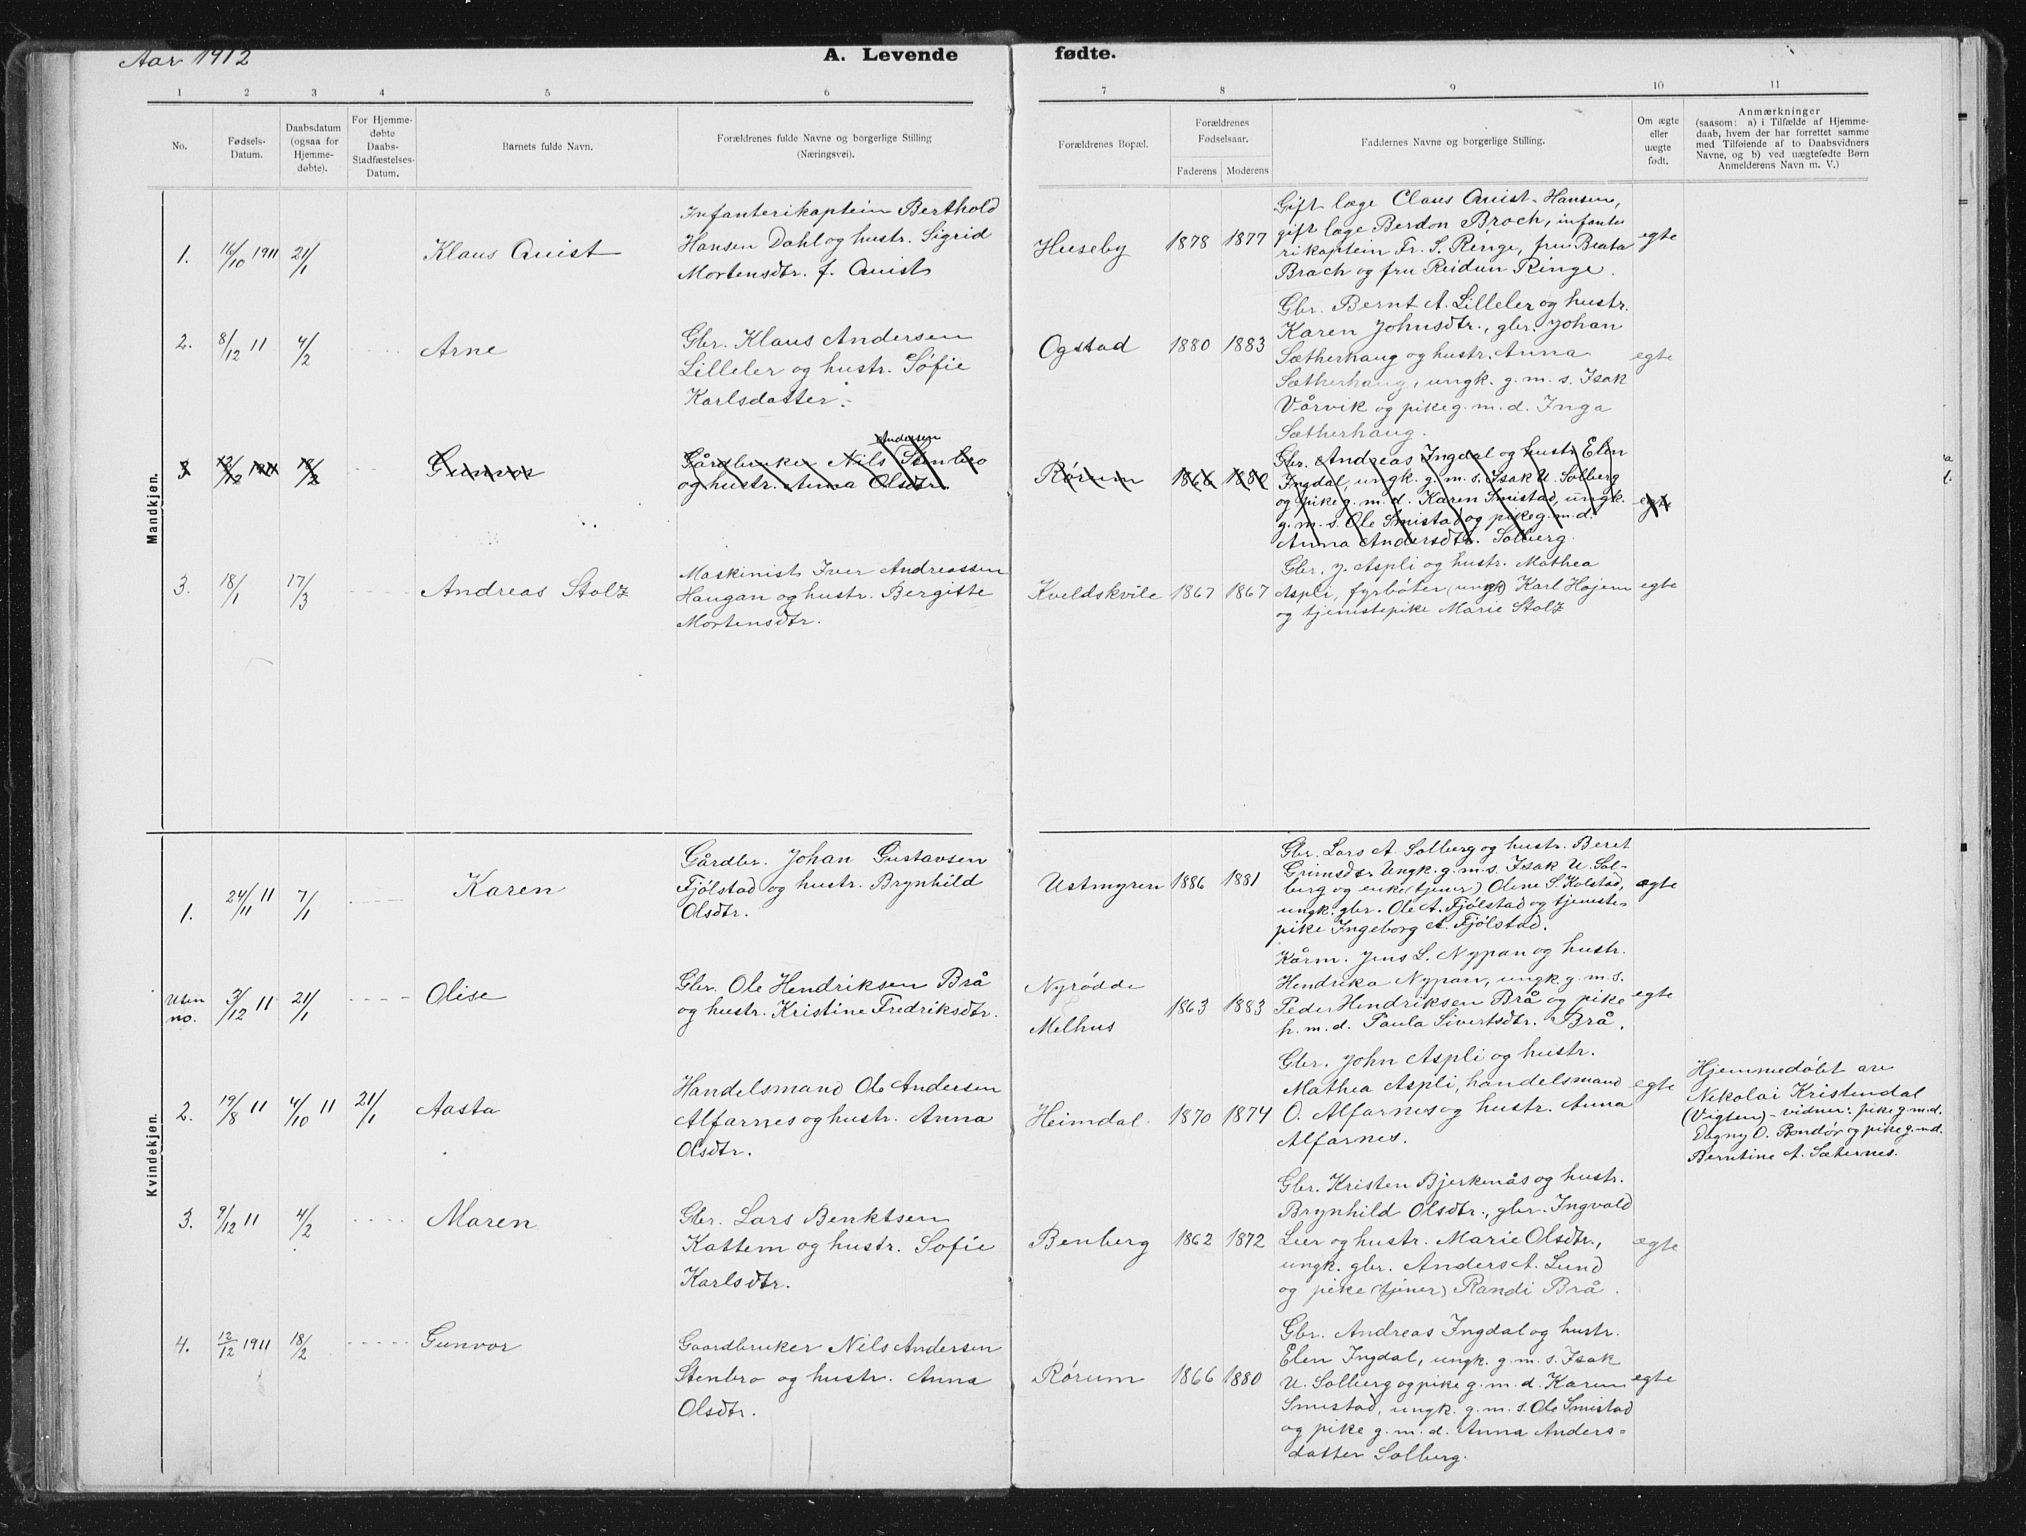 Aar 1912
A. Levende fødte.
1 2 3 4 5 6 7 8 9 10 11
No.
Fødsels-
Datum.
Daabsdatum
(ogsaa for
Hjemme-
døbte).
For Hjemme-
døbte
Daabs-
Stadfæstelses-
Datum.
Barnets fulde Navn.
Forældrenes fulde Navne og borgerlige Stilling
(Næringsvei).
Forældrenes Bopæl.
Forældrenes
Fødselsaar.
Faderens Moderens
Faddernes Navne og borgerlige Stilling.
Om ægte
eller
uægte
født.
Anmærkninger
(saasom: a) i Tilfælde af Hjemme-
daab, hvem der har forrettet samme
med Tilføiende af to Daabsvidners
Navne, og b) ved uægtefødte Børn
Anmelderens Navn m. V.)
Mandkjøn.
1. 16/10 1911 21/1
Klaus Quist
Infanterikaptein Berthold
Hansen Dahl og hustr. Sigrid
Mortensdtr. f. Quist
Huseby 1878 1877
Gift læge Claus Quist-Hansen,
gift læge Berdon Broch, infante
rikaptein Fr. S. Ringe, fru Beata
Broch og fru Reidun Ringe.
egte
2. 8/12 11 4/2
Arne
Gbr. Klaus Andersen
Lilleler og hustr. Sofie
Karlsdatter.
Ogstad 1880 1883
Gbr. Bernt A. Lilleler og hustr.
Karen Johnsdtr., gbr. Johan
Sætherhaug og hustr. Anna
Sætherhaug, ungk. g.m.s. Isak
Vårvik og pike g.m.d. Inga
Sætherhaug.
egte
3 12/12 1911 18/2
Gunvor
Andersen
Gårdbruker Nils Stenbro
og hustr. Anna Olsdtr.
Rørum 1866 1880
Gbr. Andreas Ingdal og hustr. Elen
Ingdal, ungk. g.m.s. Isak U. Solberg
og pike g.m.d. Karen Smistad, ungk.
g.m.s. Ole Smistad og pike g.m.d.
Anna Andersdtr. Solberg.
egte
3. 18/1 17/3
Andreas Stolz
Maskinist Iver Andreassen
Haugan og hustr. Bergitte
Mortensdtr.
Kveldskvile 1867 1867
Gbr. J. Aspli og hustr. Mathea
Aspli, fyrbøter (ungk) Karl Højem
og tjenestepike Marie Stolz
egte
Kvindekjøn.
1. 24/11 11 7/1
Karen
Gårdbr. Johan Gustavsen
Fjølstad og hustr. Brynhild
Olsdtr.
Ustmyren 1886 1881
Gbr. Lars A. Solberg og hustr. Beret
Grimsdtr. Ungk. g.m.s. Isak U. Sol-
berg og enke (tjener) Oline S. Kolstad,
ungk. gbr. Ole A. Fjølstad og tjeneste-
pike Ingeborg A. Fjølstad.
ægte
Uten
no. 3/12 11 21/1
Olise
Gbr. Ole Hendriksen Brå
og hustr. Kristine Fredriksdtr.
Nyrødde
Melhus
1863 1883
Kårm. Jens L. Nypan og hustr.
Hendrika Nypan, ungk. g.m.s.
Peder Hendriksen Brå og pike
h.m.d. Paula Sivertsdtr. Brå.
egte
2. 19/8 11 4/10 11 21/1
Aasta
Handelsmand Ole Andersen
Alfarnes og hustr. Anna
Olsdtr.
Heimdal 1870 1874
Gbr. John Aspli og hustr.
Mathea Aspli, handelsmand
O. Alfarnes og hustr. Anna
Alfarnes.
egte
Hjemmedøbt av
Nikolai Kristendal
(Vigten) - vidner: pike g.m.d.
Dagny O. Rondør og pike g.m.d.
Berntine A. Sæternes.
3. 9/12 11 4/2
Maren
Gbr. Lars Benktsen
Kattem og hustr. Sofie
Karlsdtr.
Benberg 1862 1872
Gbr. Kristen Bjerkenås og hustr.
Brynhild Olsdtr., gbr. Ingvald
Lier og hustr. Marie Olsdtr.,
ungk. gbr. Anders A. Lund
og pike (tjener) Randi Brå.
ægte
4. 12/12 1911 18/2
Gunvor
Gaardbruker Nils Andersen
Stenbro og hustr. Anna
Olsdtr.
Rørum 1866 1880
Gbr. Andreas Ingdal og hustr.
Elen Ingdal, ungk. g.m.s. Isak
U. Solberg og pike g.m.d. Karen
Smistad, ungk. g.m.s. Ole Smistad
og pike g.m.d. Anna Anders-
datter Solberg.
egte